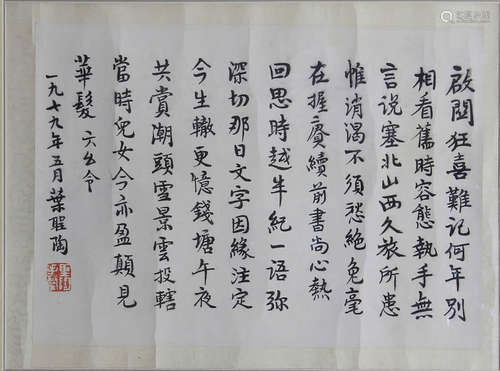 啟關狂喜難記何年別
相看舊時容態執手無
言說塞北山西久旅所患
惟消渴不須愁絕兔毫
在握賡續前書尚心熱
回思時越半紀一语弥
深切那日文字因緣注定
今生轍更憶錢塘午夜
共赏潮頭雪景雲投轄
當時兒女今亦盈顛見
華髮 六幺令
一九七九年五月葉聖陶